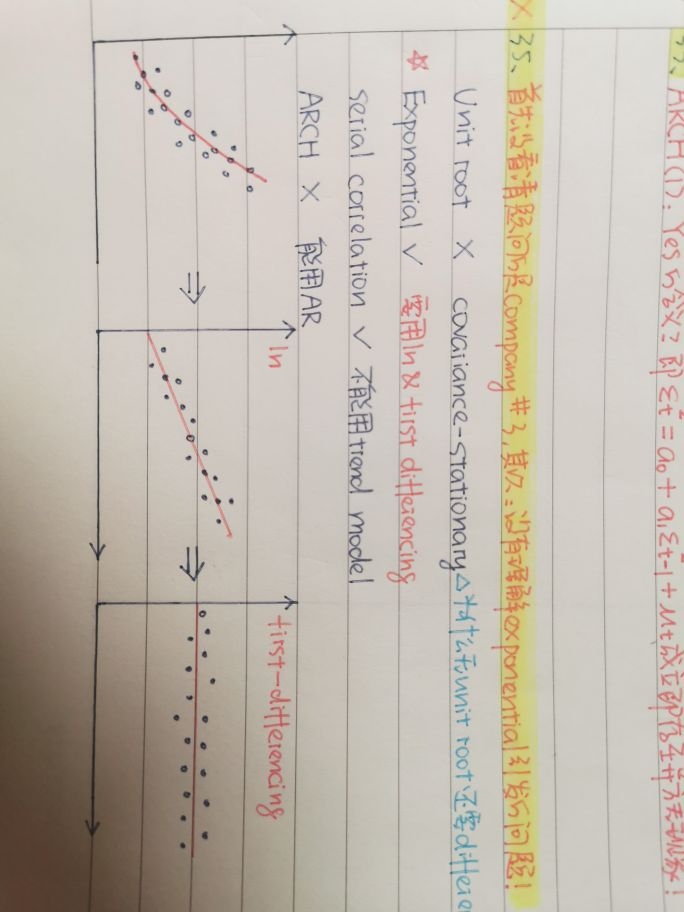 33、ARCH(1): Yes的含义：即 εt² = a0 + a1 ε²t-1 + μt 成立即存在异方差现象！
X 35、首先没看清题问的是Company #3, 其次：没有理解exponential引发的问题！
Unit root X covariance-stationary △为什么无unit root还需differe
☆ Exponential ✓ 需用ln & first differencing
serial correlation ✓ 不能用trend model
ARCH X 能用AR
ln
first-differencing